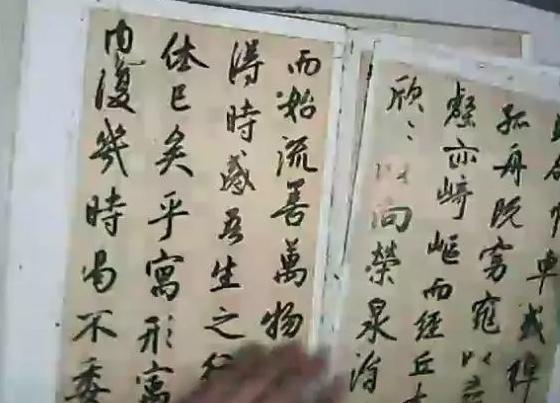 車或棹
孤舟既窈窕以
壑亦崎嶇而經丘木
欣〻以向榮泉涓
而始流善萬物
得時感吾生之行
休已矣乎寓形寓
内復幾時曷不委